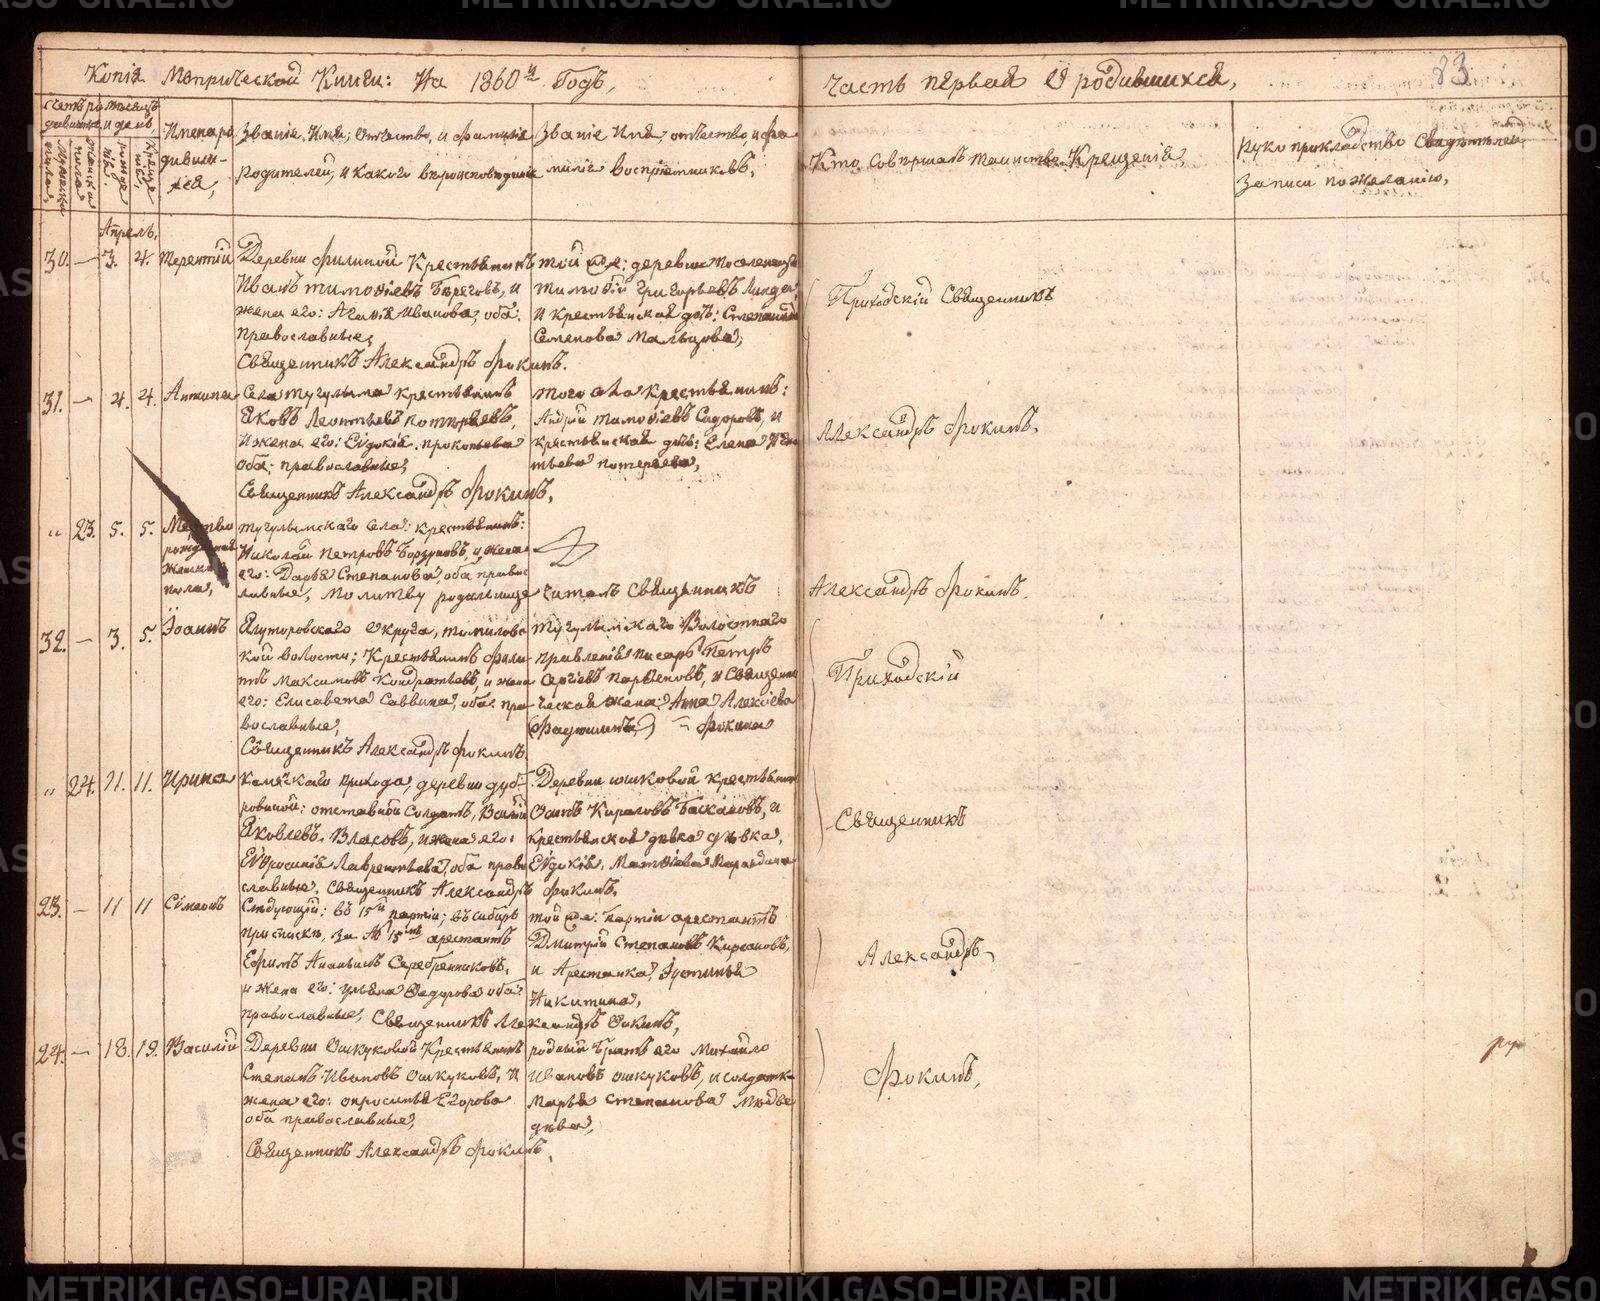 Копія Метрической Книги: На 1860й Годъ,
Часть первая О родившихся,
83
Имена ро
дивших-
ся,
Званіе, Имя, Отчество, и Фамилія
родителей, и какого вѣроисповѣданія
Званіе Имя, отчество, и фа
милія воспріемниковъ,
Кто совершалъ таинство Крещенія,
Рукоприкладство свидѣтелей
Записи по желанію,
Апрель.
30. — 3. 4. Терентій
Деревни Филиной Крестьянинъ
Иванъ Тимоѳіевъ Береговъ, и
жена его: Агаѳія Иванова, оба
православные,
Священникъ Александръ Фокинъ.
той же: деревни поселенецъ
Тимоѳій Григорьевъ
и крестьянская дочь: Степанида
Семенова Мальцова;
Приходскій Священникъ
31. — 4. 4. Антипа
Села тугулыма крестьянинъ
Яковъ Леонтьевъ Потеряевъ,
и жена его: Евдокія прокопьева
оба: православные,
Священникъ Александръ Фокинъ,
того села крестьянинъ:
Андрей тимоѳіевъ Сидоровъ, и
крестьянская дочь: Елена
тьева потеряева,
Александръ Фокинъ,
„ 23. 5. 5. Мертво
рожденная
женска
пола,
тугулымскаго села: крестьянинъ:
Николай Петровъ Борзуновъ, и жена
его: Дарья Степанова, оба право
славные, Молитву родильнице читалъ Священникъ
Александръ Фокинъ.
32. — 3. 5. Іоаннъ
Ялуторовскаго Округа, томиловс
кой волости; Крестьянинъ Фили
пъ Максимовъ Кондратьевъ, и жена
его: Елисавета Саввина, оба пра
вославные,
Священникъ Александръ Фокинъ.
тугулымскаго Волостнаго
правленія писарь Петръ
Сергіевъ Парѳеновъ, и Священни
ческая жена: Анна Алексіева
Фокина
Приходскій
„ 24. 11. 11. Ирина
прихода, деревни дуб
ровиной: отставной Солдатъ, Василій
Яковлевъ Власовъ, и жена его:
Евфросинія Лаврентьева, оба право
славные, Священникъ Александръ Фокинъ.
Деревни юшковой крестьянинъ
Осипъ Кириловъ Баскановъ, и
крестьянская дѣвка дѣвка,
Евдокія, Матѳіева
Священникъ
23. — 11 11 Сѵмеонъ
Следующій: въ 15й партіи; въ сибирь
при спискѣ, за № 15мъ арестантъ
Ефимъ Ананьинъ Серебренниковъ,
и жена его: ульяна Ѳедорова оба:
православные, Священникъ Александръ Фокинъ,
той же: партіи арестантъ
Дмитрій Степановъ Кирсановъ,
и Арестанка, Іустинья
Никитина,
Александръ
24. — 18. 19. Василій
Деревни Ошкуковой Крестьянинъ
Степанъ Ивановъ Ошкуковъ, и
жена его: опросинья Егорова
оба православные,
Священникъ Александръ Фокинъ,
родный братъ его Михайло
Ивановъ ошкуковъ, и солдатка
Марья степанова Медве
дѣва,
Фокинъ,
METRIKI.GASO-URAL.RU
METRIKI.GASO-URAL.RU
METRIKI.GASO-URAL.RU